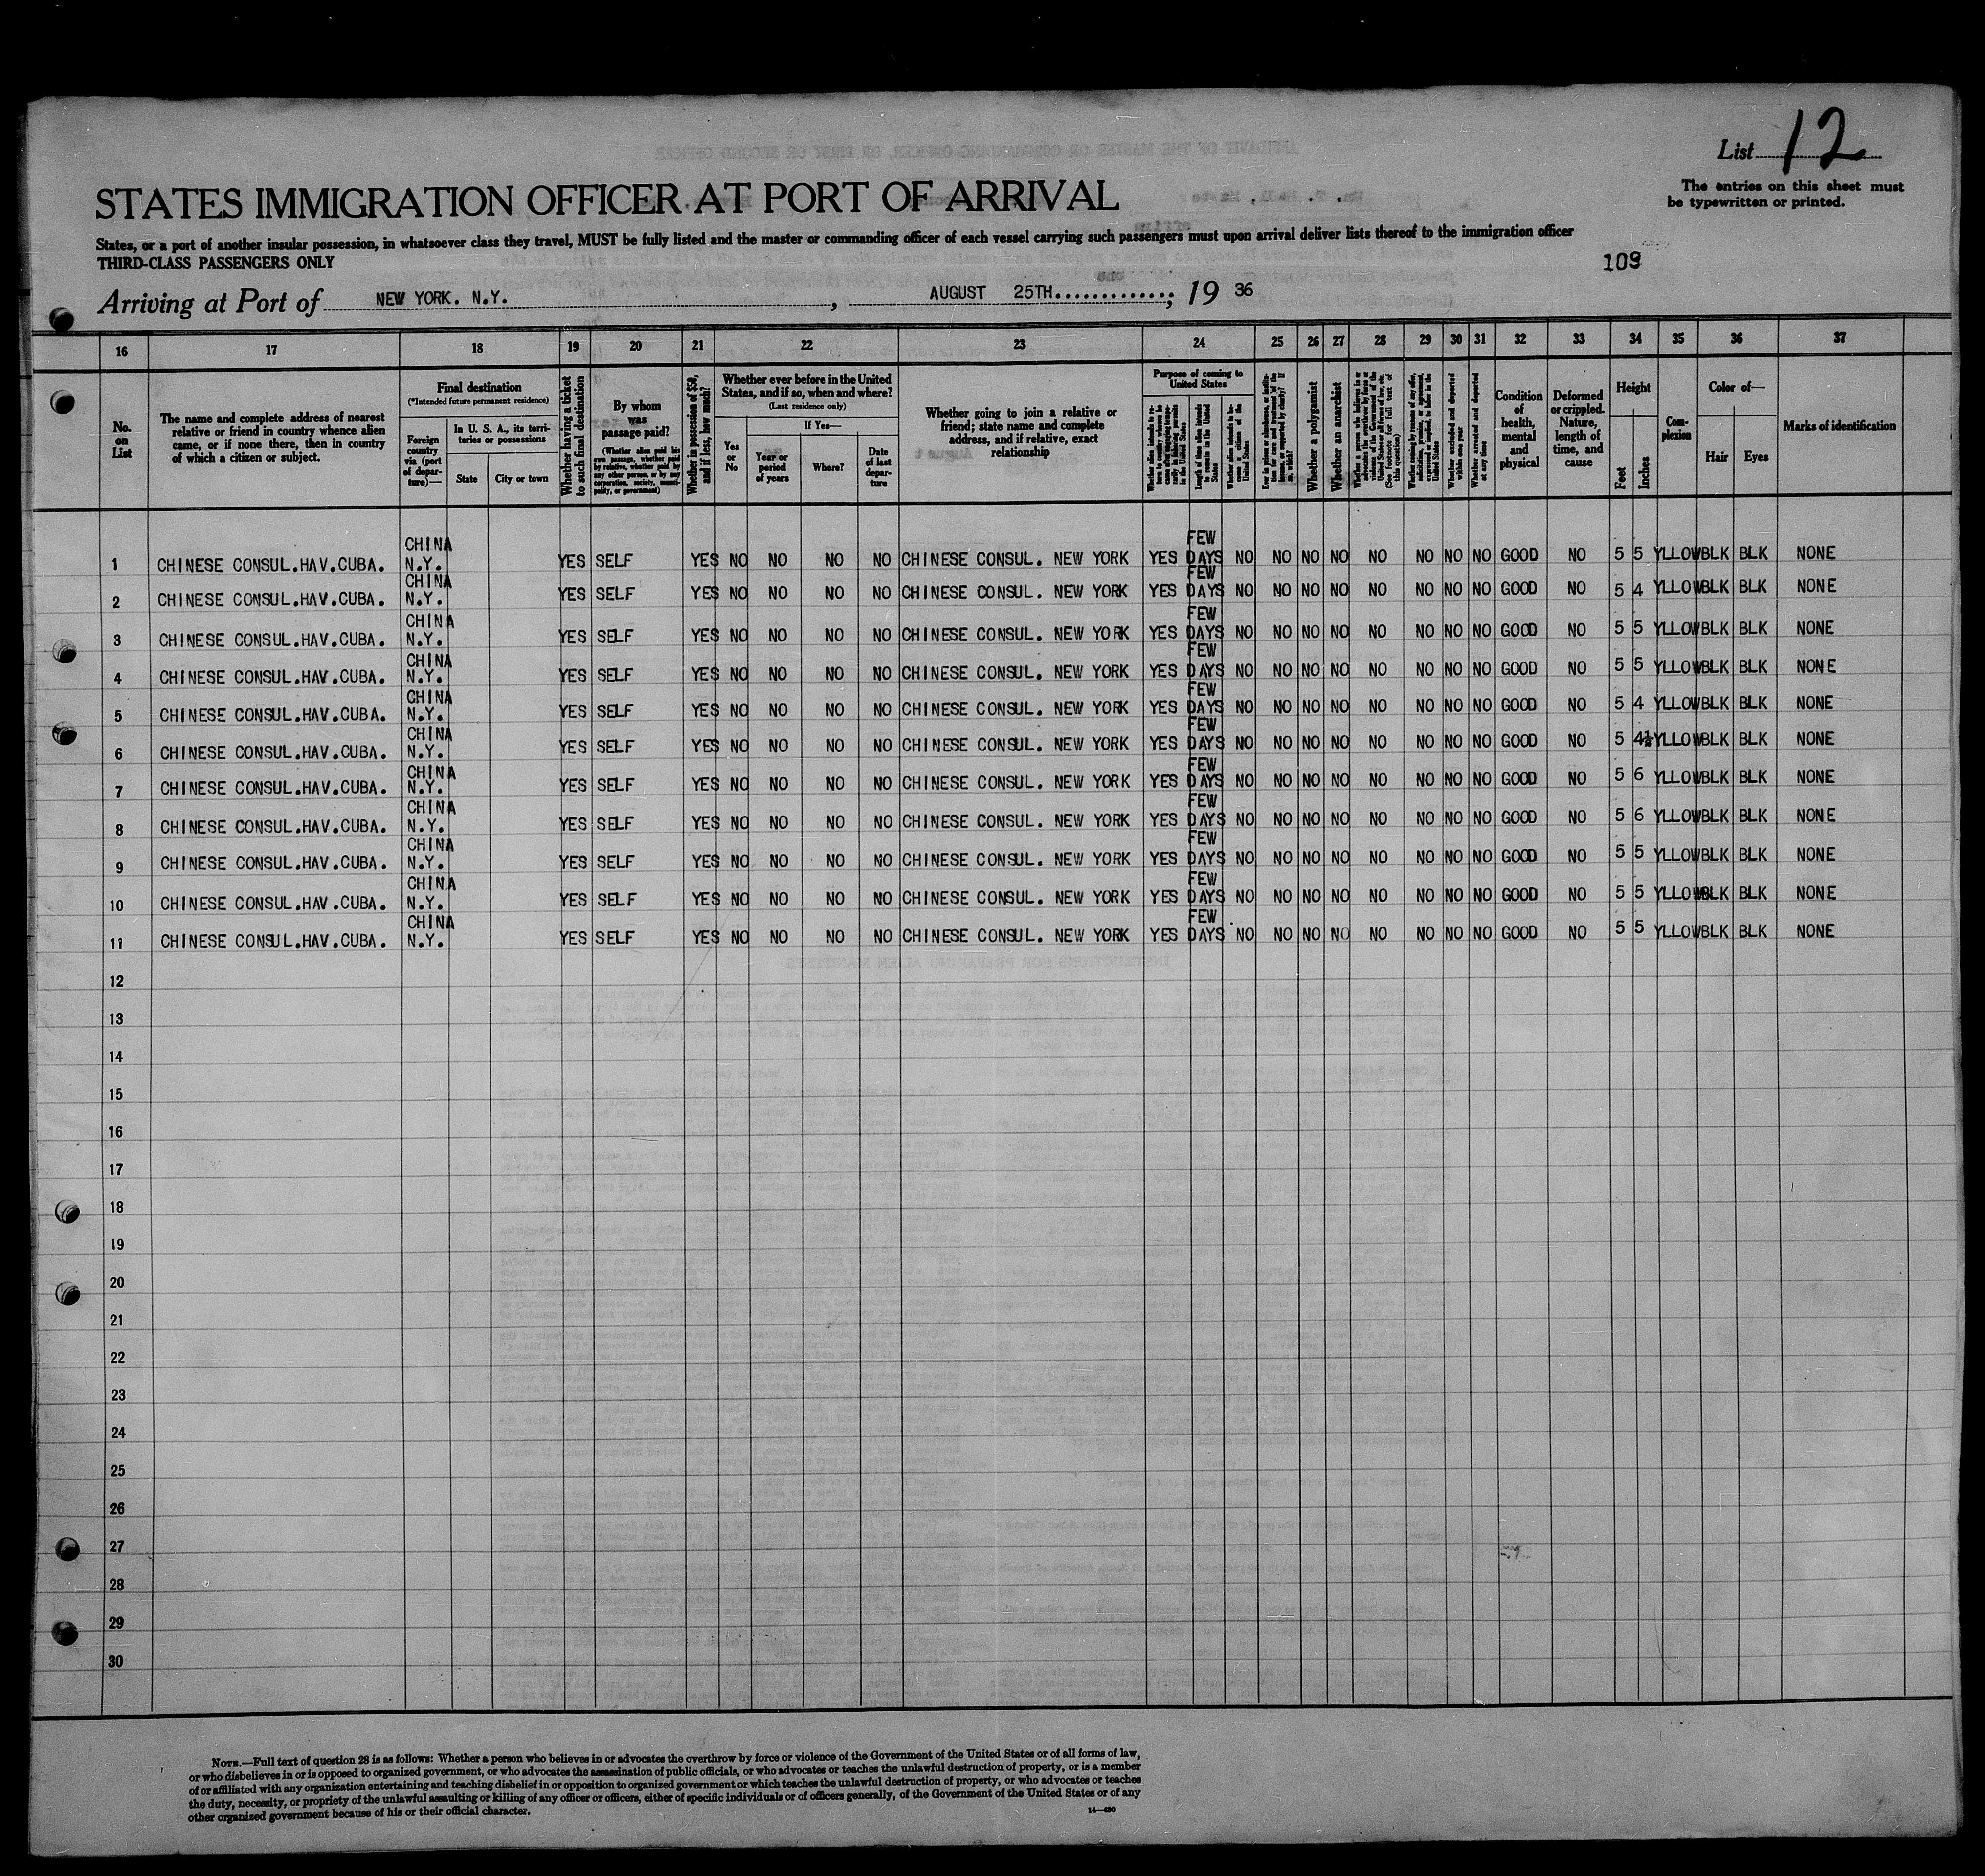 List 12
The entries on this sheet must
be typewritten or printed.
STATES IMMIGRATION OFFICER AT PORT OF ARRIVAL
States, or a port of another insular possession, in whatsoever class they travel, MUST be fully listed and the master or commanding officer of each vessel carrying such passengers must upon arrival deliver lists thereof to the immigration officer
THIRD-CLASS PASSENGERS ONLY
109
Arriving at Port of NEW YORK. N.Y. , AUGUST 25TH.............; 19 36
16 17 18 19 20 21 22 23 24 25 26 27 28 29 30 31 32 33 34 35 36 37
No.
on
List
The name and complete address of nearest
relative or friend in country whence alien
came, or if none there, then in country
of which a citizen or subject.
Final destination
(*Intended future permanent residence)
Foreign
country
via (port
of depar-
ture)—
In U. S. A., its terri-
tories or possessions
State
City or town
Whether having a ticket
to such final destination
By whom
was
passage paid?
(Whether alien paid his
own passage, whether paid
by relative, whether paid by
any other person, or by any
corporation, society, munici-
pality, or government)
Whether in possession of $50,
and if less, how much?
Whether ever before in the United
States, and if so, when and where?
(Last residence only)
Yes
or
No
If Yes—
Year or
period
of years
Where?
Date
of last
depar-
ture
Whether going to join a relative or
friend; state name and complete
address, and if relative, exact
relationship
Purpose of coming to
United States
Length of time alien intends
to remain in the United
States
Whether alien intends to be-
come a citizen of the
United States
Whether a polygamist
Whether an anarchist
(See footnote for full text of
this question)
Whether excluded and deported
within one year
Whether arrested and deported
at any time
Condition
of
health,
mental
and
physical
Deformed
or crippled.
Nature,
length of
time, and
cause
Height
Feet
Inches
Com-
plexion
Color of—
Hair
Eyes
Marks of identification
1 CHINESE CONSUL.HAV.CUBA. CHINA N.Y. YES SELF YES NO NO NO NO CHINESE CONSUL. NEW YORK YES FEW DAYS NO NO NO NO NO NO NO NO GOOD NO 5 5 YLLOW BLK BLK NONE
2 CHINESE CONSUL.HAV.CUBA. CHINA N.Y. YES SELF YES NO NO NO NO CHINESE CONSUL. NEW YORK YES FEW DAYS NO NO NO NO NO NO NO NO GOOD NO 5 4 YLLOW BLK BLK NONE
3 CHINESE CONSUL.HAV.CUBA. CHINA N.Y. YES SELF YES NO NO NO NO CHINESE CONSUL. NEW YORK YES FEW DAYS NO NO NO NO NO NO NO NO GOOD NO 5 5 YLLOW BLK BLK NONE
4 CHINESE CONSUL.HAV.CUBA. CHINA N.Y. YES SELF YES NO NO NO NO CHINESE CONSUL. NEW YORK YES FEW DAYS NO NO NO NO NO NO NO NO GOOD NO 5 5 YLLOW BLK BLK NONE
5 CHINESE CONSUL.HAV.CUBA. CHINA N.Y. YES SELF YES NO NO NO NO CHINESE CONSUL. NEW YORK YES FEW DAYS NO NO NO NO NO NO NO NO GOOD NO 5 4 YLLOW BLK BLK NONE
6 CHINESE CONSUL.HAV.CUBA. CHINA N.Y. YES SELF YES NO NO NO NO CHINESE CONSUL. NEW YORK YES FEW DAYS NO NO NO NO NO NO NO NO GOOD NO 5 4½ YLLOW BLK BLK NONE
7 CHINESE CONSUL.HAV.CUBA. CHINA N.Y. YES SELF YES NO NO NO NO CHINESE CONSUL. NEW YORK YES FEW DAYS NO NO NO NO NO NO NO NO GOOD NO 5 6 YLLOW BLK BLK NONE
8 CHINESE CONSUL.HAV.CUBA. CHINA N.Y. YES SELF YES NO NO NO NO CHINESE CONSUL. NEW YORK YES FEW DAYS NO NO NO NO NO NO NO NO GOOD NO 5 6 YLLOW BLK BLK NONE
9 CHINESE CONSUL.HAV.CUBA. CHINA N.Y. YES SELF YES NO NO NO NO CHINESE CONSUL. NEW YORK YES FEW DAYS NO NO NO NO NO NO NO NO GOOD NO 5 5 YLLOW BLK BLK NONE
10 CHINESE CONSUL.HAV.CUBA. CHINA N.Y. YES SELF YES NO NO NO NO CHINESE CONSUL. NEW YORK YES FEW DAYS NO NO NO NO NO NO NO NO GOOD NO 5 5 YLLOW BLK BLK NONE
11 CHINESE CONSUL.HAV.CUBA. CHINA N.Y. YES SELF YES NO NO NO NO CHINESE CONSUL. NEW YORK YES FEW DAYS NO NO NO NO NO NO NO NO GOOD NO 5 5 YLLOW BLK BLK NONE
12
13
14
15
16
17
18
19
20
21
22
23
24
25
26
27
28
29
30
NOTE.—Full text of question 28 is as follows: Whether a person who believes in or advocates the overthrow by force or violence of the Government of the United States or of all forms of law,
or who disbelieves in or is opposed to organized government, or who advocates the assassination of public officials, or who advocates or teaches the unlawful destruction of property, or is a member
of or affiliated with any organization entertaining and teaching disbelief in or opposition to organized government or which teaches the unlawful destruction of property, or who advocates or teaches
the duty, necessity, or propriety of the unlawful assaulting or killing of any officer or officers, either of specific individuals or of officers generally, of the Government of the United States or of any
other organized government because of his or their official character.
14—430